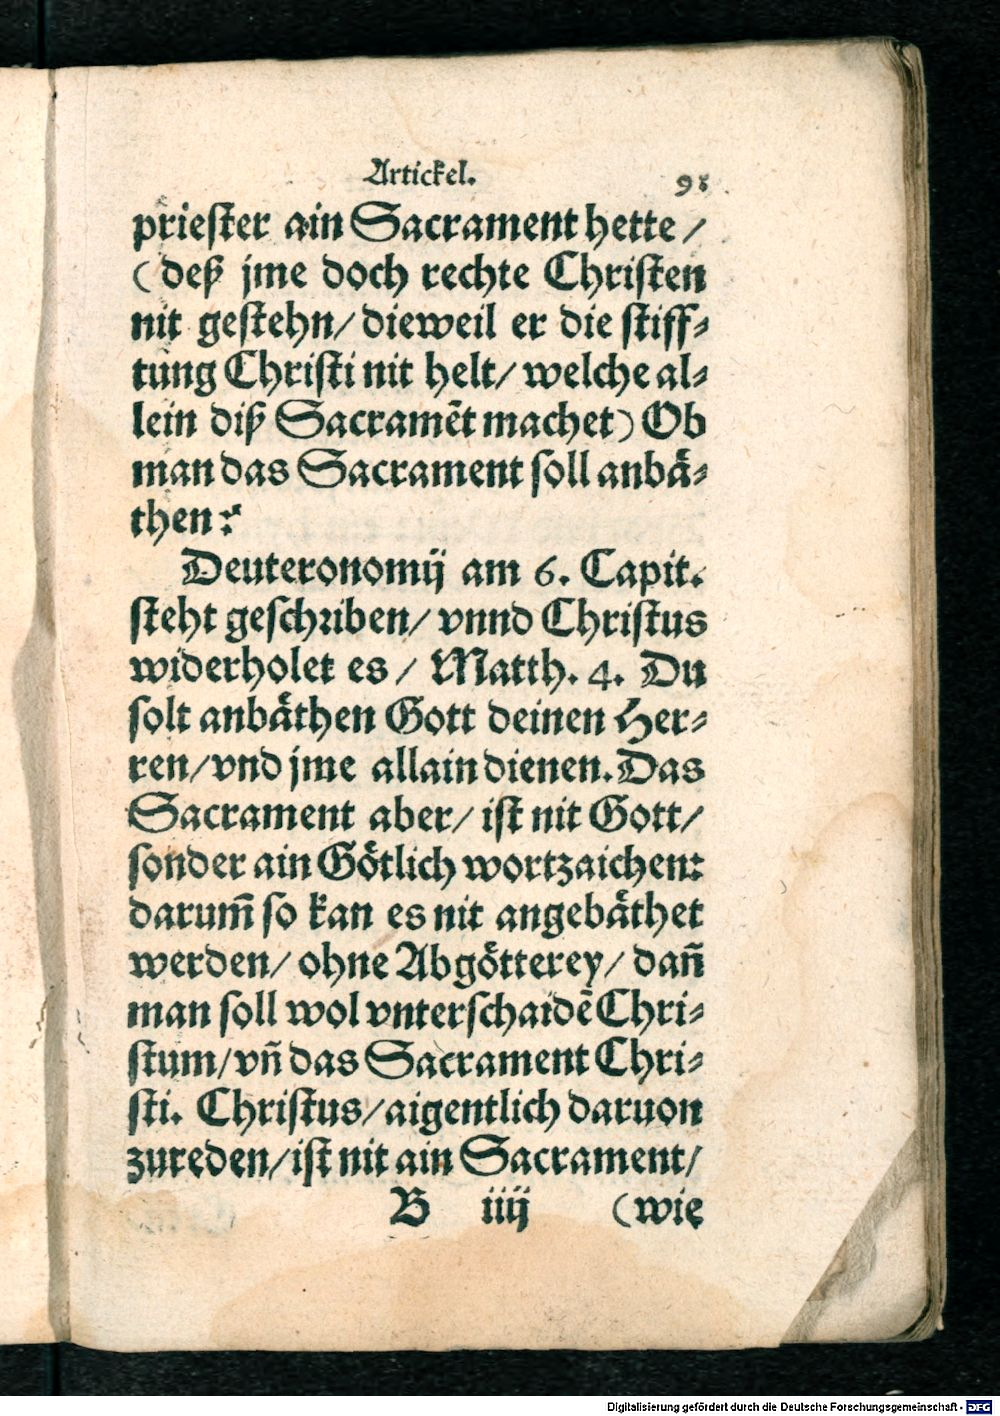 Artickel. 98
priester ain Sacrament hette /
(deß jme doch rechte Christen
nit gestehn / dieweil er die stiff⸗
tung Christi nit helt / welche al⸗
lein diß Sacramēt machet) Ob
man das Sacrament soll anbaͤ⸗
then?
Deuteronomij am 6. Capit.
steht geschriben / vnnd Christus
widerholet es / Matth. 4. Du
solt anbaͤthen Gott deinen Her⸗
ren / vnd jme allain dienen. Das
Sacrament aber / ist nit Gott /
sonder ain Goͤtlich wortzaichen:
darum̄ so kan es nit angebaͤthet
werden / ohne Abgoͤtterey / dañ
man soll wol vnterschaidē Chri⸗
stum / vñ das Sacrament Chri⸗
sti. Christus / aigentlich daruon
zureden / ist nit ain Sacrament /
B iiij (wie
Digitalisierung gefördert durch die Deutsche Forschungsgemeinschaft - DFG